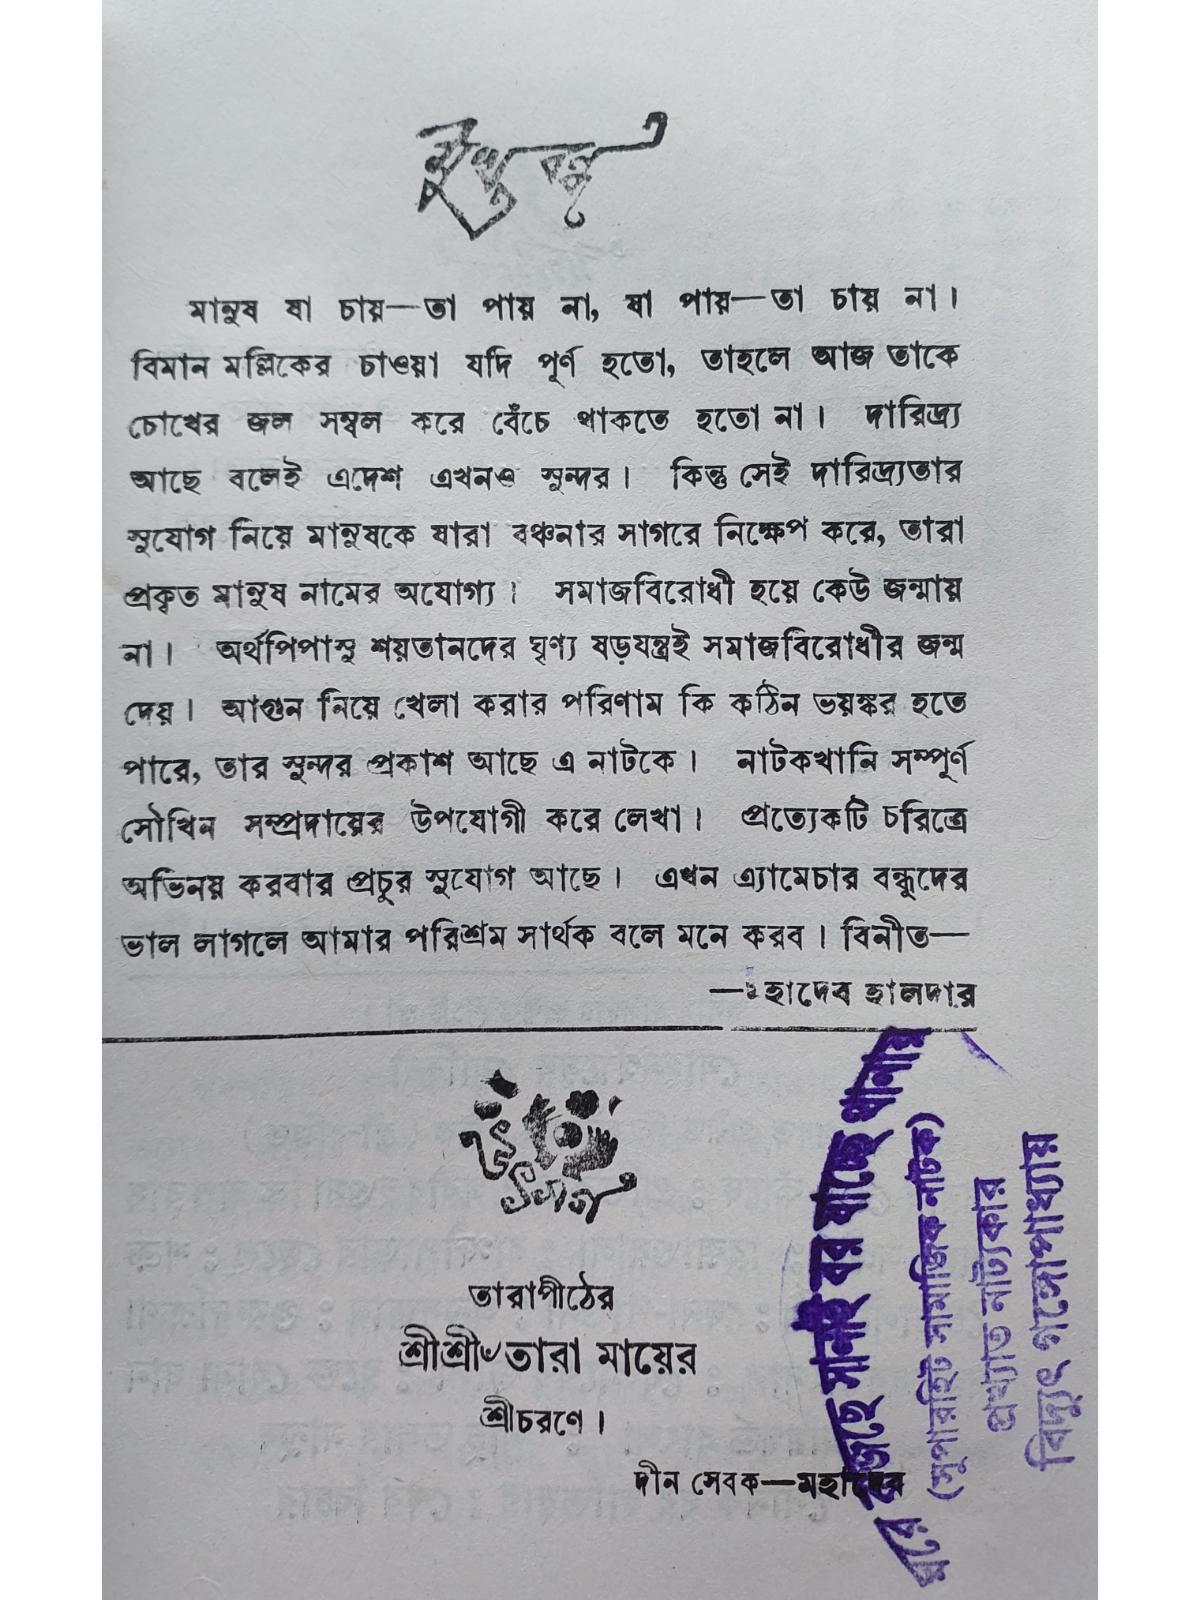 মুখবন্ধ
মানুষ যা চায়—তা পায় না, যা পায়—তা চায় না।
বিমান মল্লিকের চাওয়া যদি পূর্ণ হতো, তাহলে আজ তাকে
চোখের জল সম্বল করে বেঁচে থাকতে হতো না। দারিদ্র্য
আছে বলেই এদেশ এখনও সুন্দর। কিন্তু সেই দারিদ্র্যতার
সুযোগ নিয়ে মানুষকে যারা বঞ্চনার সাগরে নিক্ষেপ করে, তারা
প্রকৃত মানুষ নামের অযোগ্য। সমাজবিরোধী হয়ে কেউ জন্মায়
না। অর্থপিপাসু শয়তানদের ঘৃণ্য ষড়যন্ত্রই সমাজবিরোধীর জন্ম
দেয়। আগুন নিয়ে খেলা করার পরিণাম কি কঠিন ভয়ঙ্কর হতে
পারে, তার সুন্দর প্রকাশ আছে এ নাটকে। নাটকখানি সম্পূর্ণ
সৌখিন সম্প্রদায়ের উপযোগী করে লেখা। প্রত্যেকটি চরিত্রে
অভিনয় করবার প্রচুর সুযোগ আছে। এখন এ্যামেচার বন্ধুদের
ভাল লাগলে আমার পরিশ্রম সার্থক বলে মনে করব। বিনীত—
—মহাদেব হালদার
উৎসর্গ
তারাপীঠের
শ্রীশ্রী৺তারা মায়ের
শ্রীচরণে।
দীন সেবক—মহাদেব
সানাই বর যাচ্ছে থানায়
(সুপারহিট সামাজিক নাটক)
প্রখ্যাত নাট্যকার
বিদ্যুৎ গঙ্গোপাধ্যায়